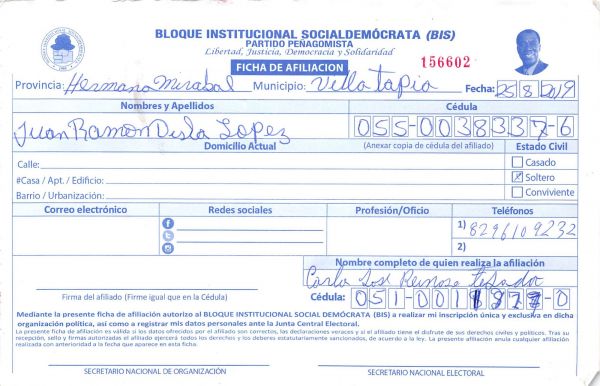 BLOQUE INSTITUCIONAL SOCIALDEMÓCRATA (BIS)
PARTIDO PEÑAGOMISTA
Libertad, Justicia, Democracia y Solidaridad
FICHA DE AFILIACION
156602
Provincia: Hermana Mirabal Municipio: Villa tapia Fecha: 25 8 2019
Nombres y Apellidos Cédula
Juan Ramon Disla Lopez 055-0038337-6
Domicilio Actual (Anexar copia de cédula del afiliado) Estado Civil
Calle: Casado
#Casa / Apt. / Edificio: Soltero
Barrio / Urbanización: Conviviente
Correo electrónico Redes sociales Profesión/Oficio Teléfonos
1) 8296109232
2)
Nombre completo de quien realiza la afiliación
Carlos José Reinoso
Firma del afiliado (Firme igual que en la Cédula) Cédula: 051-001
Mediante la presente ficha de afiliación autorizo al BLOQUE INSTITUCIONAL SOCIAL DEMÓCRATA (BIS) a realizar mi inscripción única y exclusiva en dicha
organización política, así como a registrar mis datos personales ante la Junta Central Electoral.
La presente ficha de afiliación es válida si los datos ofrecidos por el afiliado son correctos, las declaraciones veraces y si el afiliado tiene el disfrute de sus derechos civiles y políticos. Tras su
recepción, sello y firmas autorizadas el afiliado ejercerá todos los derechos y los deberes estatutariamente sancionados, de acuerdo a la ley. La presente afiliación anula cualquier afiliación
realizada con anterioridad a la fecha que aparece en esta ficha.
SECRETARIO NACIONAL DE ORGANIZACIÓN SECRETARIO NACIONAL ELECTORAL